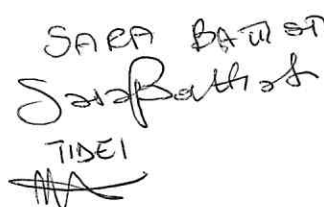 SARA BATTIST
Sara Battist
TIDEI